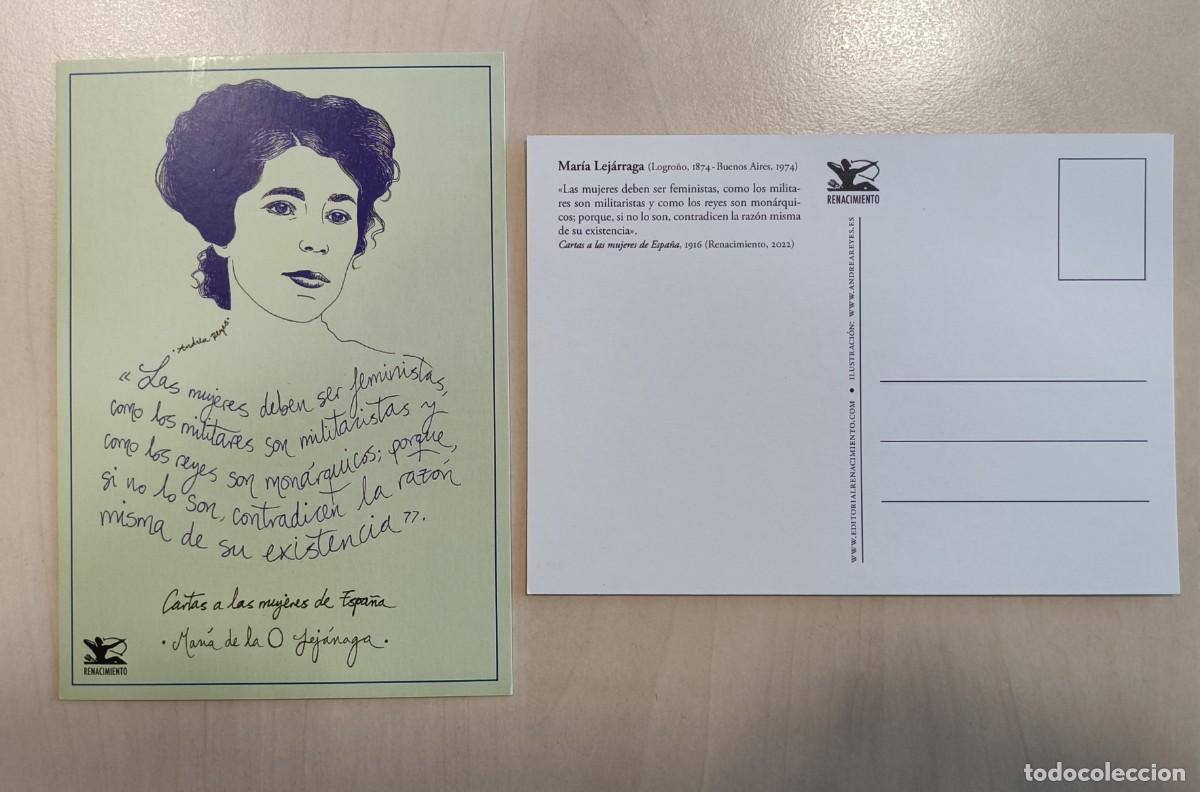 ·Andrea Reyes·
“Las mujeres deben ser feministas,
como los militares son militaristas y,
como los reyes son monárquicos; porque,
si no lo son, contradicen la razón
misma de su existencia”.
Cartas a las mujeres de España
·María de la O Lejárraga·
RENACIMIENTO
María Lejárraga (Logroño, 1874 - Buenos Aires, 1974)
«Las mujeres deben ser feministas, como los milita-
res son militaristas y como los reyes son monárqui-
cos; porque, si no lo son, contradicen la razón misma
de su existencia».
Cartas a las mujeres de España, 1916 (Renacimiento, 2022)
RENACIMIENTO
WWW.EDITORIALRENACIMIENTO.COM • ILUSTRACIÓN: WWW.ANDREAREYES.ES
todocoleccion